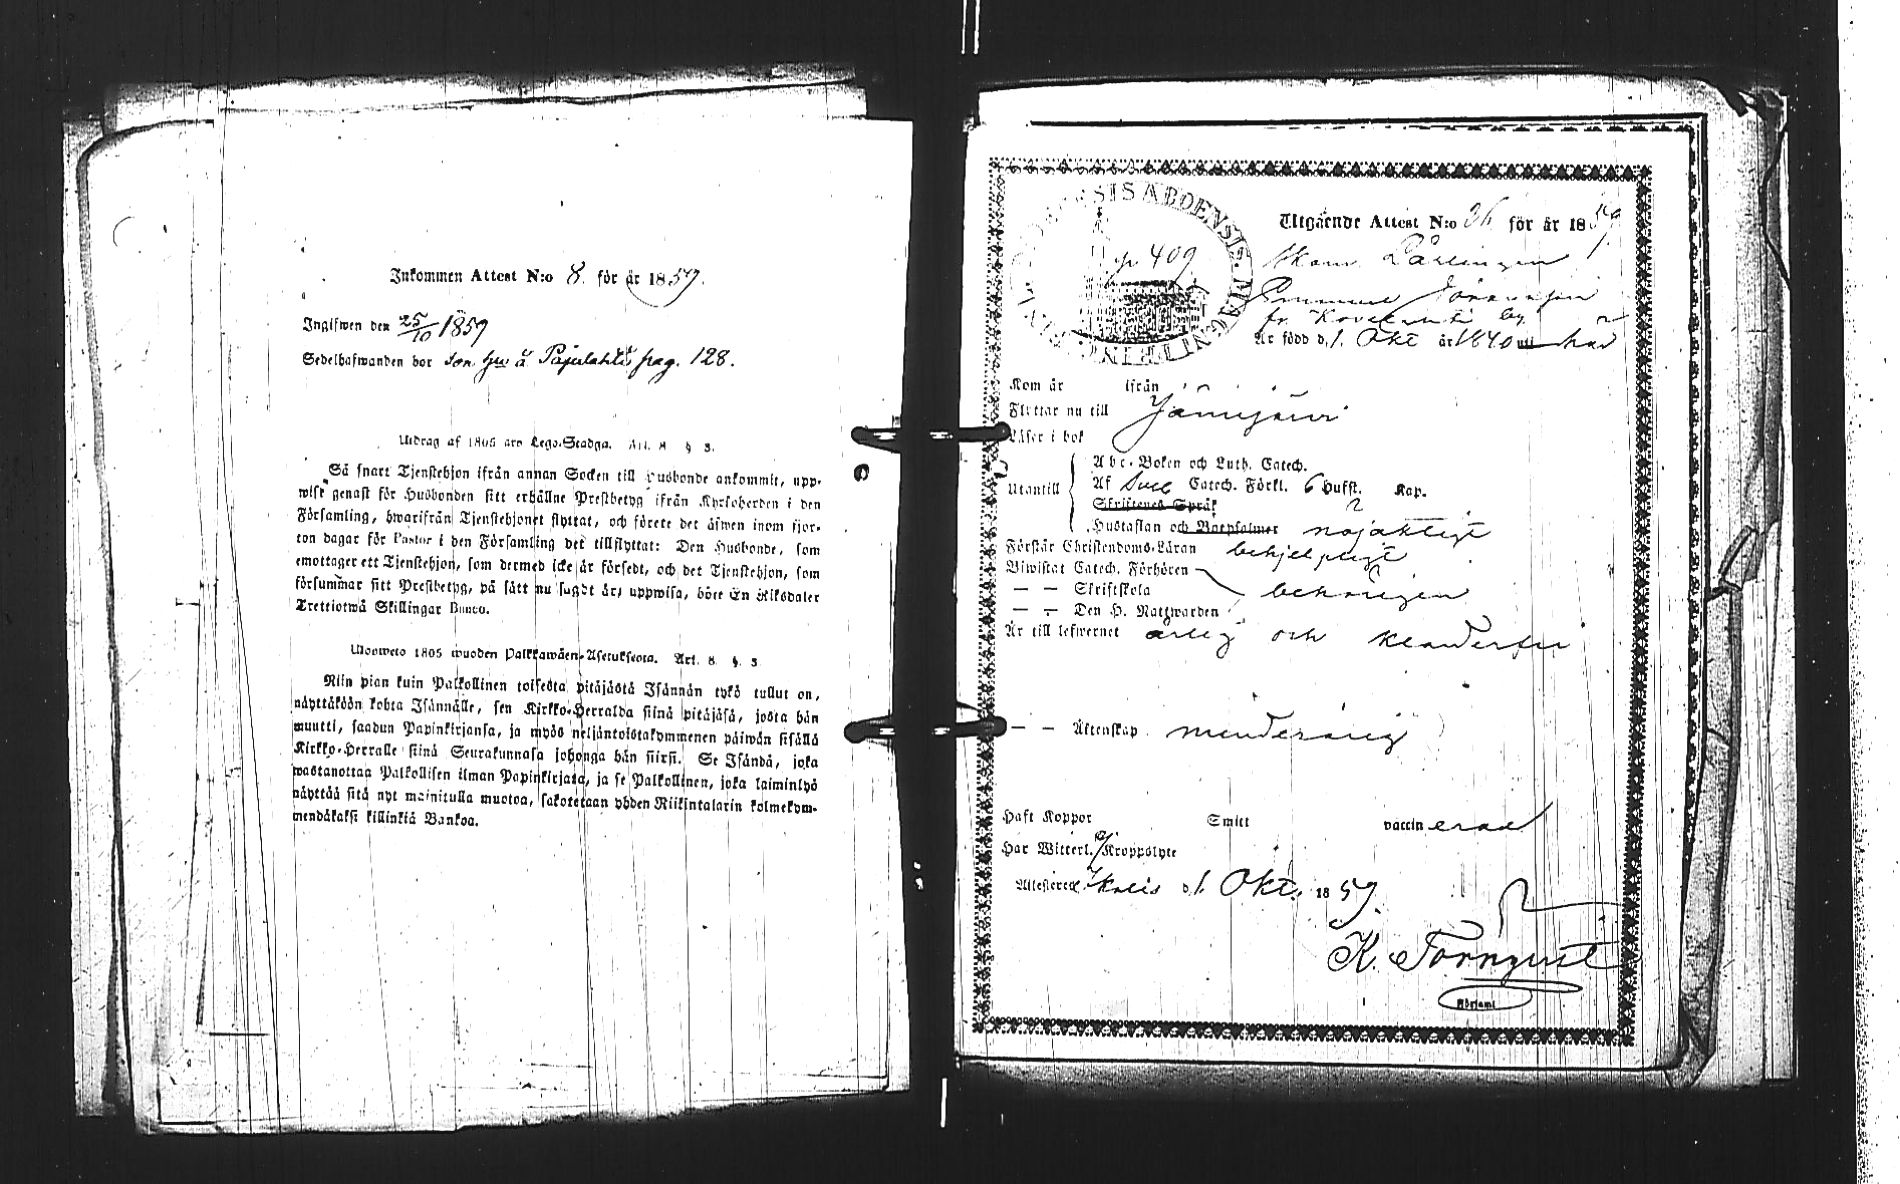 Inkommen Attest N:o 8 för år 1859.
Ingifwen den 25/10 1859
Sedelhafwanden bor son hu å Pajulahti pag. 128.
Utdrag af 1805 års Lego-Stadga. Art. 8 § 3.
Så snart Tjenstehjon ifrån annan Socken till Husbonde ankommit, upp-
wise genast för Husbonden sitt erhållne Prestbetyg ifrån Kyrkoherden i den
Församling, hwarifrån Tjenstehjonet flyttat, och förete det äfwen inom fjor-
ton dagar för Pastor i den Församling det tillflyttat: Den Husbonde, som
emottager ett Tjenstehjon, som dermed icke är försedt, och det Tjenstehjon, som
försummar sitt Prestbetyg, på sätt nu sagdt är, uppwisa, böte En Riksdaler
Trettiotwå Skillingar Banco.
Ulosweto 1805 wuoden Palkkawäen-Asetuksesta. Art. 8. §. 3
Niin pian kuin Palkollinen toisesta pitäjästä Isännän tykö tullut on,
näyttäköön kohta Isännälle, sen Kirkko-Herralda siinä pitäjäsä, josta hän
muutti, saadun Papinkirjansa, ja myös neljäntoistakymmenen päiwän sisällä
Kirkko-Herralle siinä Seurakunnasa johonga hän siirsi. Se Isändä, joka
wastanottaa Palkollisen ilman Papinkirjata, ja se Palkollinen, joka laiminlyö
näyttää sitä nyt mainitulla muotoa, sakotetaan yhden Riikintalarin kolmekym-
mendäkaksi killinkiä Bankoa.
Utgående Attest N:o 36 för år 1859.
p 409
År född d. 1 Okt år 1840 har
Kom år ifrån
Flyttar nu till Jämijärvi
Läser i bok
Utantill
Abc-Boken och Luth. Catech.
Af Sveb Catech. Förkl. 6 Hufst. Kap.
Skriftenes Språk 2
Hustaflan och Botpsalmer nöjaktigt
Förstår Christendoms-Läran behjelpligt
Biwistat Catech. Förhören
— — Skriftskola behörigen
— — Den H. Nattwarden
Är till lefwernet ärlig och klanderfri
— — Äktenskap minderårig
Haft Koppor Smitt vaccinerad
Har Witterl. Kroppslyte
Attestered d. 1 Okt. 1859.
K. Törnqvist